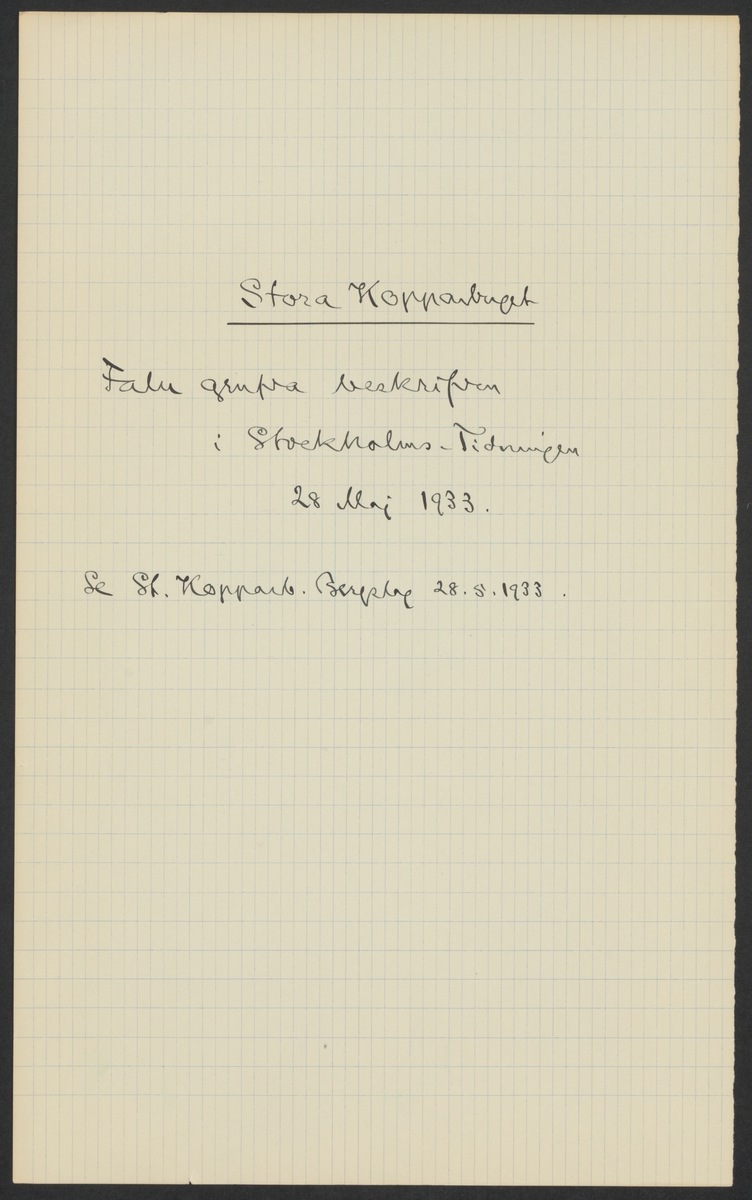 Stora Kopparberget
Falu grufva beskrifven
i Stockholms-Tidningen
28 Maj 1933.
Se St. Kopparb. Bergslag 28.5.1933.